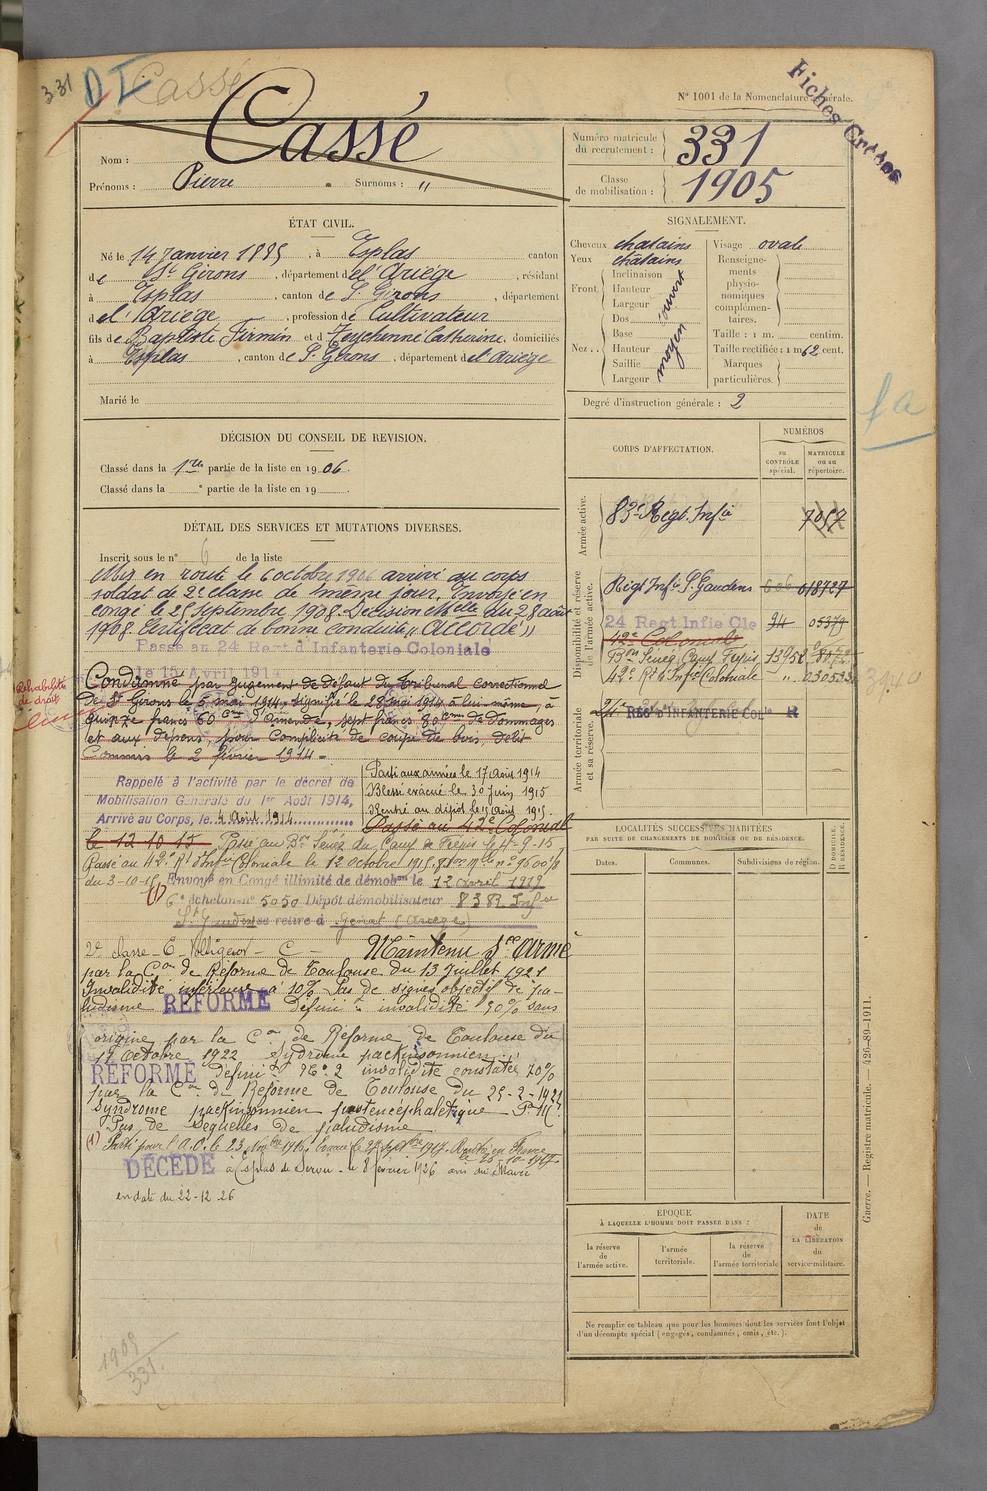 331
D I
Cassé
N° 1001 de la Nomenclature générale.
Fiches
Nom : Cassé
Prénoms : Pierre Surnoms : "
Numéro matricule du recrutement : 331
Classe de mobilisation : 1905
ÉTAT CIVIL.
Né le 14 Janvier 1885, à Esplas canton
de St Girons, département de l'Ariège, résidant
à Esplas, canton de S. Girons, département
de l'Ariège, profession de Cultivateur
fils de Baptiste Firmin et de Catherine, domiciliés
à Esplas, canton de S. Girons, département de l'Ariège
Marié le
SIGNALEMENT.
Cheveux chatains
Yeux chatains
Front. Inclinaison
Hauteur
Largeur
ouvert
Nez.. Dos
Base
Hauteur
Saillie
Largeur
moyen
Visage ovale
Renseignements physionomiques complémentaires.
Taille : 1 m. centim.
Taille rectifiée : 1 m 62 cent.
Marques particulières.
Degré d'instruction générale : 2
fa
DÉCISION DU CONSEIL DE REVISION.
Classé dans la 1re partie de la liste en 1906.
Classé dans la e partie de la liste en 19
DÉTAIL DES SERVICES ET MUTATIONS DIVERSES.
Inscrit sous le n° 6 de la liste
Mis en route le 6 octobre 1906 arrivé au corps
soldat de 2e classe de même jour. Envoyé en
congé le 25 Septembre 1908. Décision Mlle du 28 août
1908. Certificat de bonne conduite "Accordé"
Passé au 24 Regt d'Infanterie Coloniale
le 15 Avril 1914
Réhabilité de droit
Condamné par Jugement de Défaut du Tribunal Correctionnel
de St Girons le 5 mai 1914, signifié le 28 mai 1914 à lui-même, à
quinze francs 60 cmes d'Amende, sept francs 80 cmes de dommages
et aux dépens, pour complicité de coupe de bois, délit
Commis le 2 février 1914.
Rappelé à l'activité par le décret de
Mobilisation Générale du 1er Août 1914,
Arrivé au Corps, le 4 Août 1914
Parti aux armées le 17 Août 1914
Blessé évacué le 30 Juin 1915
Rentré au dépôt le Août 1915
Passé au 42e Colonial
le 12 10 15 Passé au Bon Sénég. du Camp de Fréjus le 4-9-15
Passé au 42e Rt d'Infie Coloniale le 12 octobre 1915
du 3-10-15 Envoyé en Congé illimité de démobon le 12 avril 1919
(1) 6e échelon n° 5050 Dépôt démobilisateur 83 R Infie
St Gaudens se retire à (Ariège)
2e classe - E - Voltigeur - C - Maintenu Sce Armé
par la Con de Réforme de Toulouse du 13 Juillet 1921
Invalidité inférieure à 10%. Pas de signes objectif de pa-
ludisme RÉFORMÉ Définif invalidité 30% sans
origine par la Con de Réforme de Toulouse du
17 Octobre 1922 syndrome parkinsonnien
RÉFORMÉ Définif N° 2 invalidité constatée 70%
par la Con de Réforme de Toulouse du
Syndrome parkinsonnien postencéphaletique
Pas de Sequelles de paludisme
(1) Parti pour l'A.O. le 23 Novbre 1916. Evacué le 27 Septbre 1917. Rentré en France
le 25-10-1917
DÉCÉDÉ à Esplas de Sérou le 8 février 1926 avis du Maire
en date du 22-12-26
1905
331.
CORPS D'AFFECTATION.
NUMÉROS
au CONTRÔLE spécial.
MATRICULE ou au répertoire.
Armée active.
83e Régt. Infie 7057
Disponibilité et réserve de l'armée active.
Régt Infie S. Gaudens 606 018727
24 Regt Infie Cle 34 05377
42e Coloniale
Bon Sénég. Camp Fréjus 13958
42e Rt d'Infie Coloniale "
Armée territoriale et sa réserve.
24e REGt D'INFANTERIE COLle
LOCALITÉS SUCCESSIVES HABITÉES
PAR SUITE DE CHANGEMENTS DE DOMICILE OU DE RÉSIDENCE.
Dates.
Communes.
Subdivisions de région.
D DOMICILE.
R RÉSIDENCE.
ÉPOQUE
À LAQUELLE L'HOMME DOIT PASSER DANS :
la réserve de l'armée active.
l'armée territoriale.
la réserve de l'armée territoriale
DATE de LA LIBÉRATION du service militaire.
Ne remplir ce tableau que pour les hommes dont les services font l'objet
d'un décompte spécial (engagés, condamnés, omis, etc.).
Guerre. — Registre matricule. — 426-89-1911.